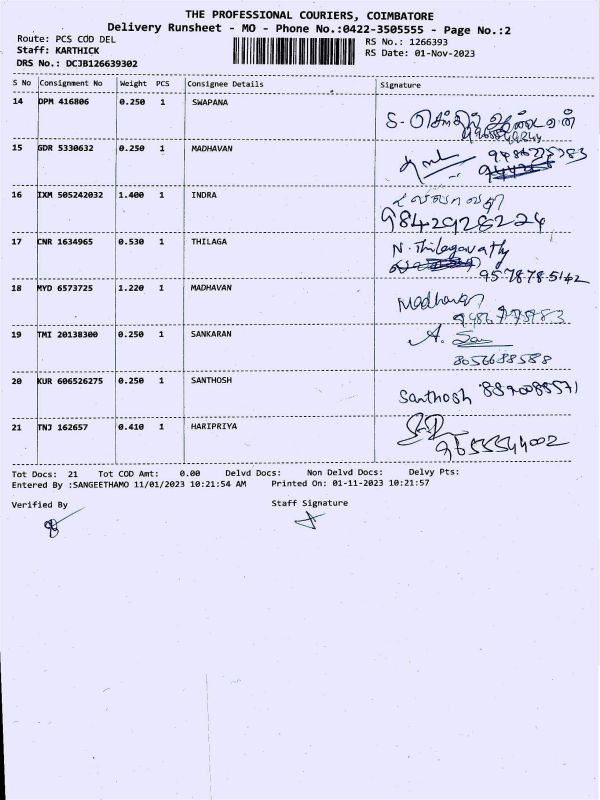 THE PROFESSIONAL COURIERS, COIMBATORE
Delivery Runsheet - MO - Phone No.:0422-3505555 - Page No.:2
Route: PCS COD DEL
Staff: KARTHICK
DRS No.: DCJB126639302
RS No.: 1266393
RS Date: 01-Nov-2023
S No Consignment No Weight PCS Consignee Details Signature
14 DPM 416806 0.250 1 SWAPANA
S. செந்தில் ஆண்டவன்
15 GDR 5330632 0.250 1 MADHAVAN
16 IXM 505242032 1.400 1 INDRA
9842928224
17 CNR 1634965 0.530 1 THILAGA
N. Thilagavathy
9578785142
18 MYD 6573725 1.220 1 MADHAVAN
Madhavan
19 TMI 20138300 0.250 1 SANKARAN
A. San
8056688588
20 KUR 606526275 0.250 1 SANTHOSH
Santhosh 8870088571
21 TNJ 162657 0.410 1 HARIPRIYA
9655544002
Tot Docs: 21 Tot COD Amt: 0.00 Delvd Docs: Non Delvd Docs: Delvy Pts:
Entered By :SANGEETHAMO 11/01/2023 10:21:54 AM Printed On: 01-11-2023 10:21:57
Verified By Staff Signature